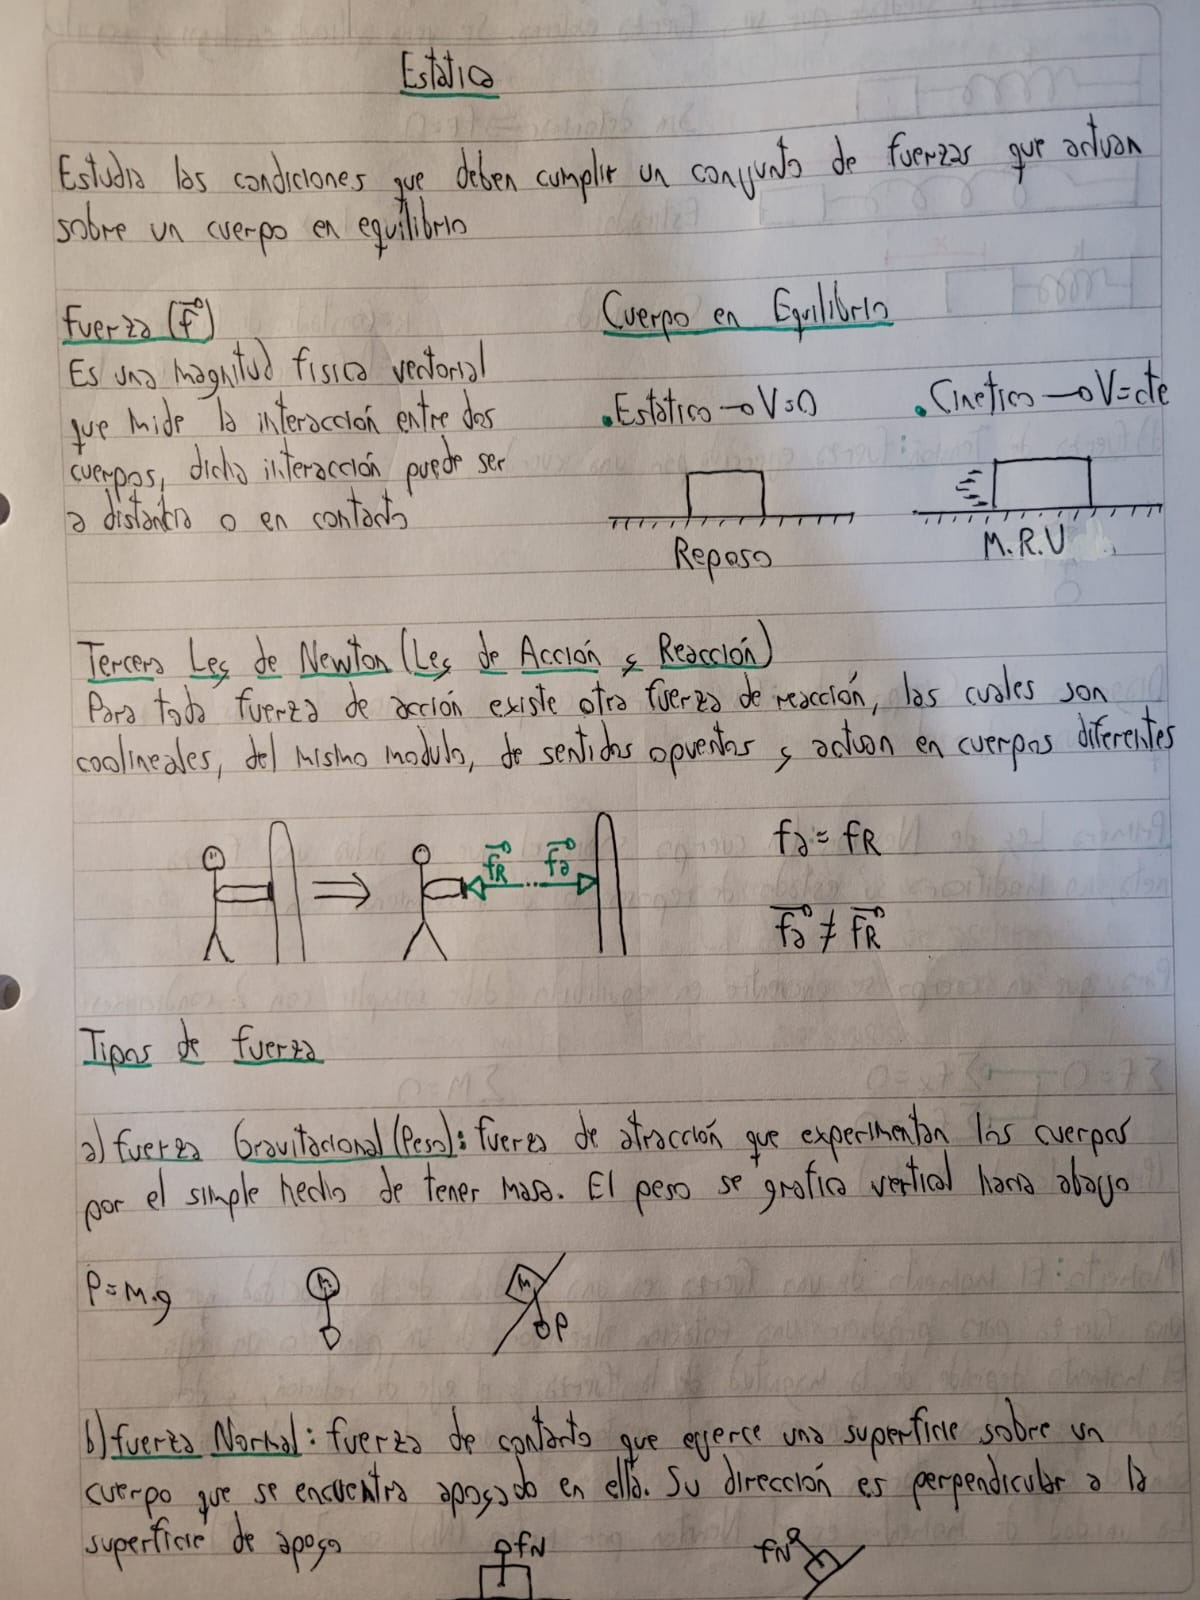 Estática
Estudia las condiciones que deben cumplir un conjunto de fuerzas que actuan
sobre un cuerpo en equilibrio
Fuerza (F)
Es una magnitud fisica vectorial
que mide la interacción entre dos
cuerpos, dicha interacción puede ser
a distancia o en contacto
Cuerpo en Equilibrio
• Estático → V=0
• Cinetico → V=cte
Reposo
M.R.U
Tercera Ley de Newton (Ley de Acción y Reacción)
Para toda fuerza de acción existe otra fuerza de reacción, las cuales son
coolineales, del mismo modulo, de sentidos opuestos y actuan en cuerpos diferentes
fR fa
fa = fR
fa ≠ fR
Tipos de fuerza
a) fuerza Gravitacional (Peso): fuerza de atracción que experimentan los cuerpos
por el simple hecho de tener masa. El peso se grafica vertical hacia abajo
P=m.g
M
P
b) fuerza Normal: fuerza de contacto que ejerce una superficie sobre un
cuerpo que se encuentra apoyado en ella. Su dirección es perpendicular a la
superficie de apoyo
fN
fN